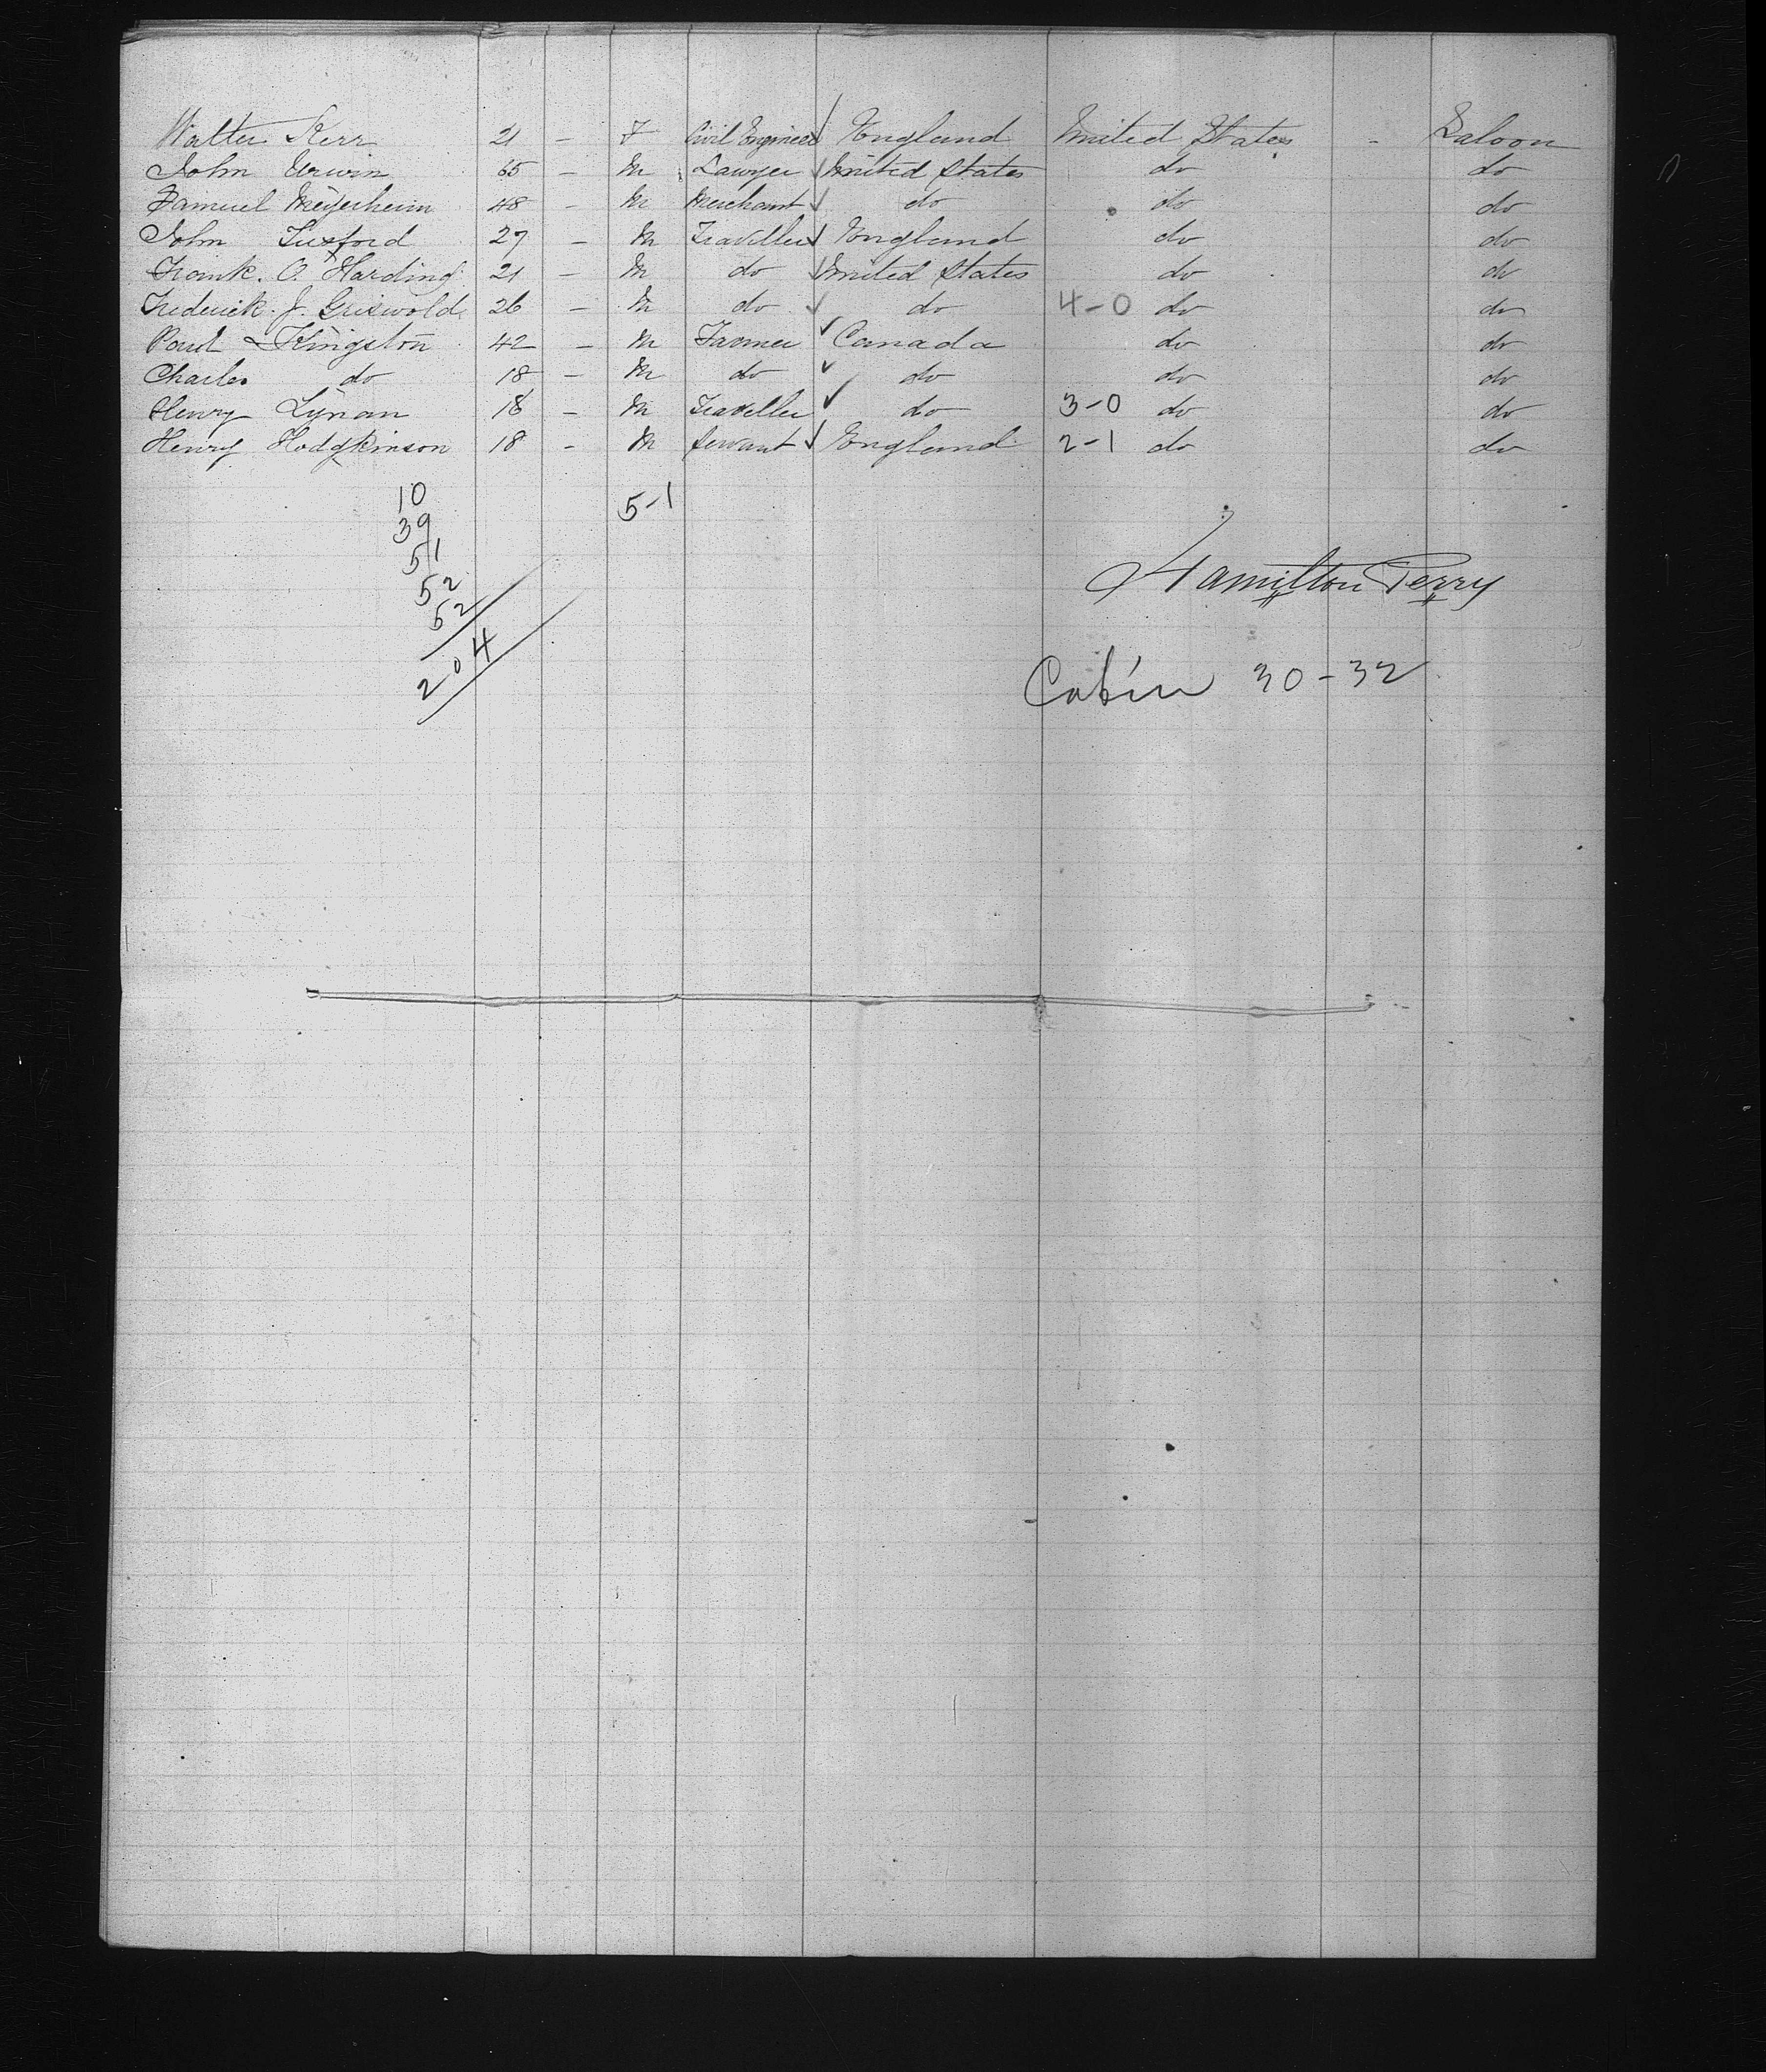 Walter Kerr 21 - F Civil Engineer England United States - Saloon
John Urwin 65 - M Lawyer United States do do
Samuel Meyerheim 48 - M Merchant do do do
John Tuxford 27 - M Traveller England do do
Frank. O. Harding 21 - M do United States do do
Frederick. J. Griswold 26 - M do do 4-0 do do
Paul Kingston 42 - M Farmer Canada do do
Charles do 18 - M do do do do
Henry Lyman 18 - M Traveller do 3-0 do do
Henry Hodgkinson 18 - M Servant England 2-1 do do
10 5-1
39
51
52
52
204
Hamilton Perry
Cabin 30-32